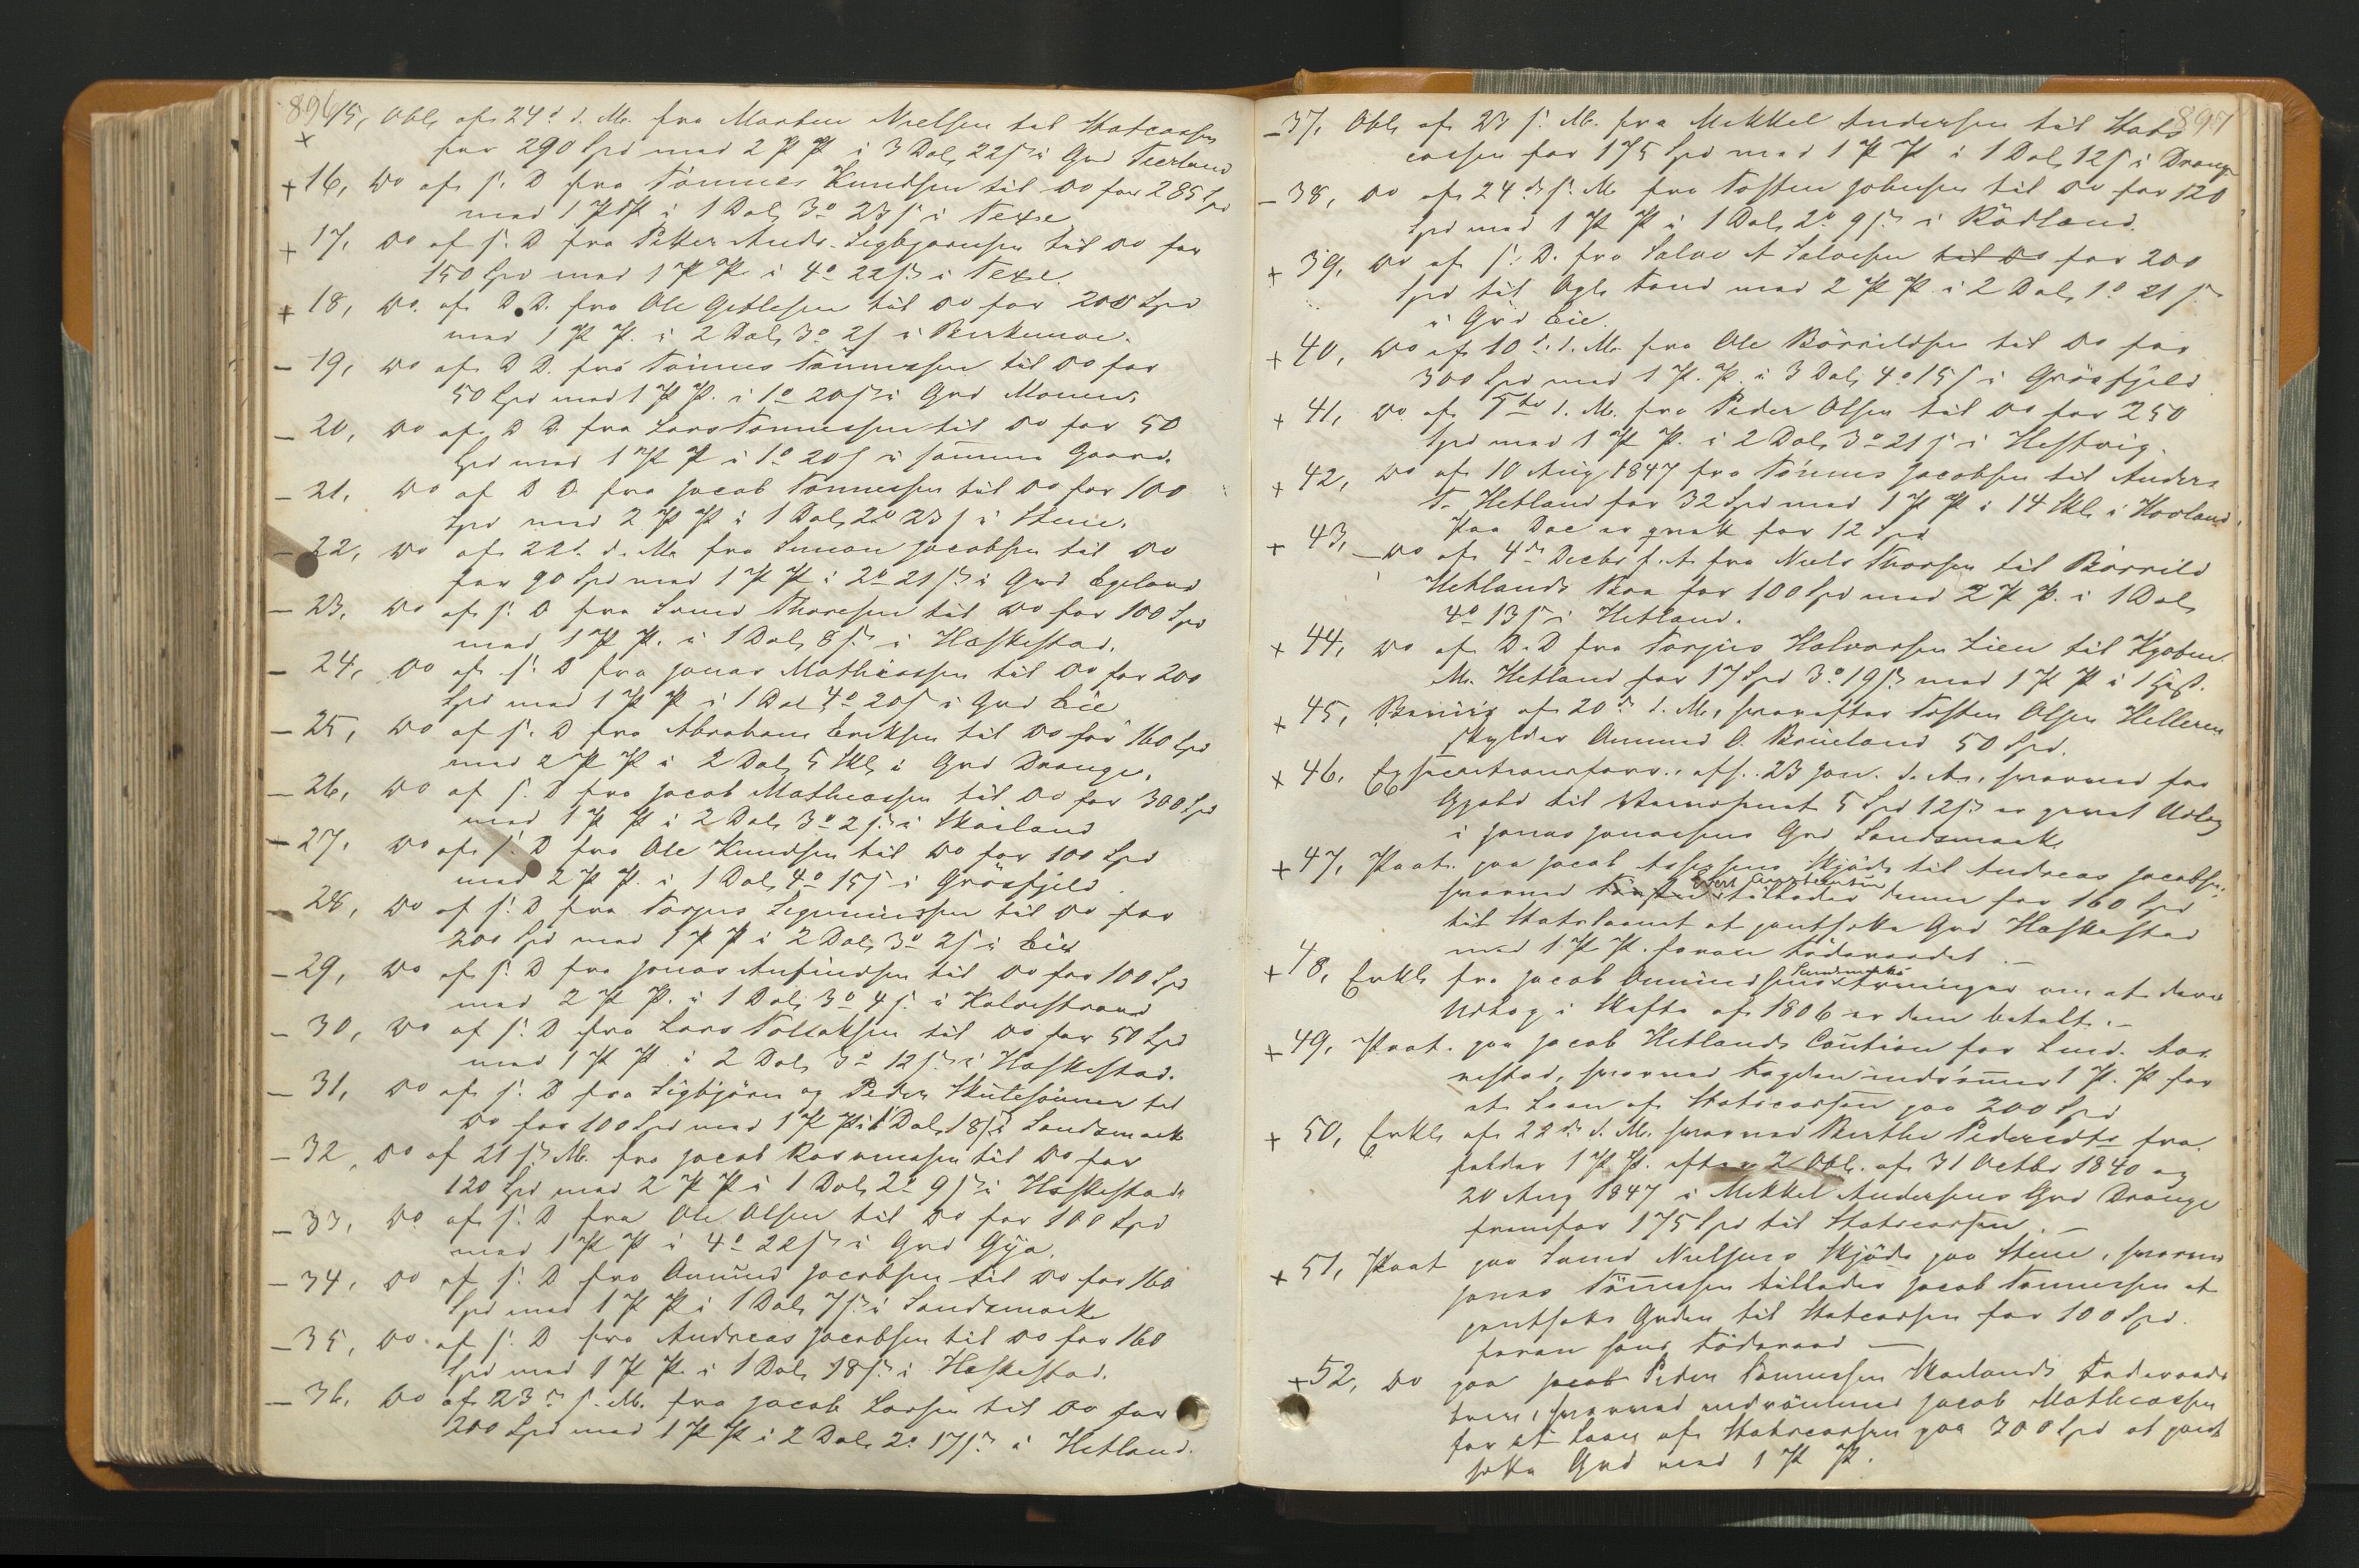 896
15, Obl, af 24d d. M. fra Morten Nielsen til Statcassen
for 290 Spd med 2 P P i 3 Dol, 22 s i Grd Teerland
16, Do af s. D fra Tönnes Knudsen til Do for 285 Spd
med 1 P P i 1 Dol, 3o 23 s i Texe
17, Do af s. D fra Peter Andr. Sigbjornsen til Do for
150 Spd med 1 P P i 4o 22 s i Texe.
18, Do. af D. D. fra Ole Getlesen til Do for 200 Spd
med 1 P P. i 2 Dol, 3o 2 s i Birkemoe.
19, Do af D D. fra Tönnes Tönnesen til Do for
50 Spd med 1 P P. i 1o 20 s i Grd
20, Do af D D. fra Lars Tonnessen til Do for 50
Spd med 1 P P i 1o 20 s i samme Gaard.
21, Do af D D. fra Jacob Tonnessen til Do for 100
Spd med 2 P P i 1 Dol, 2o 23 s i Stene.
22, Do af 22d d. M. fra Simon Jacobsen til Do
for 90 Spd med 1 P P i 2o 21 s i Grd Egeland
23, Do af s. D fra Svend Thoresen til Do for 100 Spd
med 1 P P. i 1 Dol, 8 s i Haskestad.
24, Do af s. D fra Jonas Mathiassen til Do for 200
Spd med 1 P P i 1 Dol 4o 20 s i Grd Eie
25, Do af s. D fra Abraham Eriksen til Do for 160 Spd
med 2 P P i 2 Dol, 5 Skl, i Grd Drange.
26, Do af s. D fra Jacob Mathiassen til Do for 300 Spd
med 1 P P i 2 Dol, 3o 2 s i Skailand
27, Do af s. D fra Ole Knudsen til Do for 100 Spd
med 2 P P. i 1 Dol, 4o 15 s i Grösfjeld.
28, Do af s. D fra Torjus Sigmundssen til Do for
200 Spd med 1 P P i 2 Dol, 3o 2 s i Eie
29, Do af s. D fra Jonas Anfindsen til Do for 100 Spd
med 2 P P. i 1 Dol, 3o 4 s. i Kalvestrand
30, Do af s. D fra Lars Tollaksen til Do for 50 Spd
med 1 P P. i 2 Dol, 3o 12 s i Haskestad.
31, Do af s. D fra Sigbjörn og Peder Skutesönner til
Do for 100 Spd med 1 P P i 1 Dol, 18 s i Sandsmark
32, Do af 21 s. M. fra Jacob Rasmussen til Do for
120 Spd med 2 P P i 1 Dol, 2o 9 s i Haskestad.
33, Do. af s. D fra Ole Olsen til Do for 100 Spd
med 1 P P i 4o 22 s i Grd Gya.
34, Do af s. D fra Omund Jacobsen til Do for 160
Spd med 1 P P i 1 Dol, 7 s. i Sandsmark
35, Do. af s. D fra Andreas Jacobsen til Do for 160
Spd med 1 P P. i 1 Dol, 18 s. i Haskestad.
36, Do af 23d s. M. fra Jacob Larsen til Do for
200 Spd med 1 P P i 2 Dol, 2o 17 s. i Hetland.
897
37, Obl, af 23 s. M. fra Mikkel Andersen til Stats
cassen for 175 Spd med 1 P P i 1 Dol, 12 s i Drange
38, Do af 24d s. M. fra Tosten Johnsen til Do for 120
Spd med 1 P P i 1 Dol, 2o 9 s. i Rödland.
39, Do af s. D. fra Salve A Salvesen til Do for 200
Spd til Opl, Fond med 2 P P. i 2 Dol, 1o 21 s.
i Grd Eie.
40, Do af 10d d. M. fra Ole Börrildsen til Do for
300 Spd med 1 P. P. i 3 Dol, 4o 15 s i Grösfjeld
41, Do. af 5te d. M. fra Peder Olsen til Do for 250
Spd med 1 P P. i 2 Dol, 3o 21 s i Hestvig.
42, Do af 10 Aug 1847 fra Tönnes Jacobsen til Anders
T. Hetland for 32 Spd med 1 P P i 14 Skl, i Hovland,
Paa Doc er qvitt for 12 Spd
43, Do af 4de Decbr f. A. fra Niels Thorsen til Börrild
Hetlands Boe for 100 Spd med 2 P P. i 1 Dol,
4o 13 s i Hetland.
44, Do af D. D fra Torjus Halvorsen Lien til Kjøbm.
M. Hetland for 17 Spd 3o 19 s. med 1 P P i 1
45, Beviis af 20d d. M., hvorefter Tosten Olsen Helleren
skylder Omund O. Brueland 50 Spd.
46, afh. 23 Jan. d. A., hvorved for
Gjæld til 5 Spd 12 s. er gjort Udlæg
i Jonas Jonassens Grd Sandsmark
47, Paat. paa Jacob Skjöde til Andreas Jacobsen,
hvorved tillader denne for 160 Spd
til Statslaanet at pantsætte Grd Haskestad
med 1 P P. foran Föderaadet.
48, Erkl, fra Jacob Omundsens Sandsmarks Arvinger om at deres
Udlæg i Skifte af 1806 er dem betalt.
49, Paat. paa Jacob Hetlands Caution for Lind. Tor
nestad, hvorved Fogden indrömmer 1 P. P for
et Laan af Statscassen paa 200 Spd
50, Erkl, af 22d d. M. hvorved Berthe Pedersdtr fra
falder 1 P P. efter 2 Obl. af 31 Octbr 1840 og
20 Aug 1847 i Mikkel Andersens Grd Drange
fremfor 175 Spd til Statscassen.
51, Paat paa Svend Nielsens Skjöde paa Stene, hvorved
Jonas Tönnessen tillader Jacob Tonnessen at
pantsætte Grden til Statcassen for 100 Spd.
foran sons Föderaad
52, Do paa Jacob Peder Tonnessen Skailands Föderaads
brev, hvorved indrömmes Jacob Mathiassen
for et Laan af Statscassen paa 300 Spd at pant
sætte Grd med 1 P P.